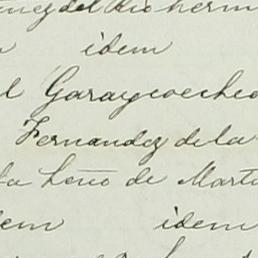 del Rio herm
idem
l Garaycoechea
Fernandez de la
de Marta
dem idem